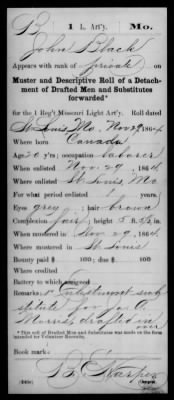 B | 1 L. Art'y. | Mo.
John Black
Appears with rank of private on
Muster and Descriptive Roll of a Detach-
ment of Drafted Men and Substitutes
forwarded*
for the 1 Reg't Missouri Light Art'y. Roll dated
St Louis Mo. Nov 29, 1864
Where born Canada
Age 20 y'rs; occupation laborer
When enlisted Nov 29, 1864
Where enlisted St Louis, Mo.
For what period enlisted years.
Eyes grey; hair brown
Complexion fair; height 5 ft. in.
When mustered in Nov 29, 1864
Where mustered in St Louis
Bounty paid $ 100; due $ 100
Where credited
To which battery assigned
Remarks: 1st Enlistment sub
stitute for
Morris drafted in
over
* This roll of Drafted Men and Substitutes was made on the form
intended for Volunteer Recruits.
Book mark:
Copyist.